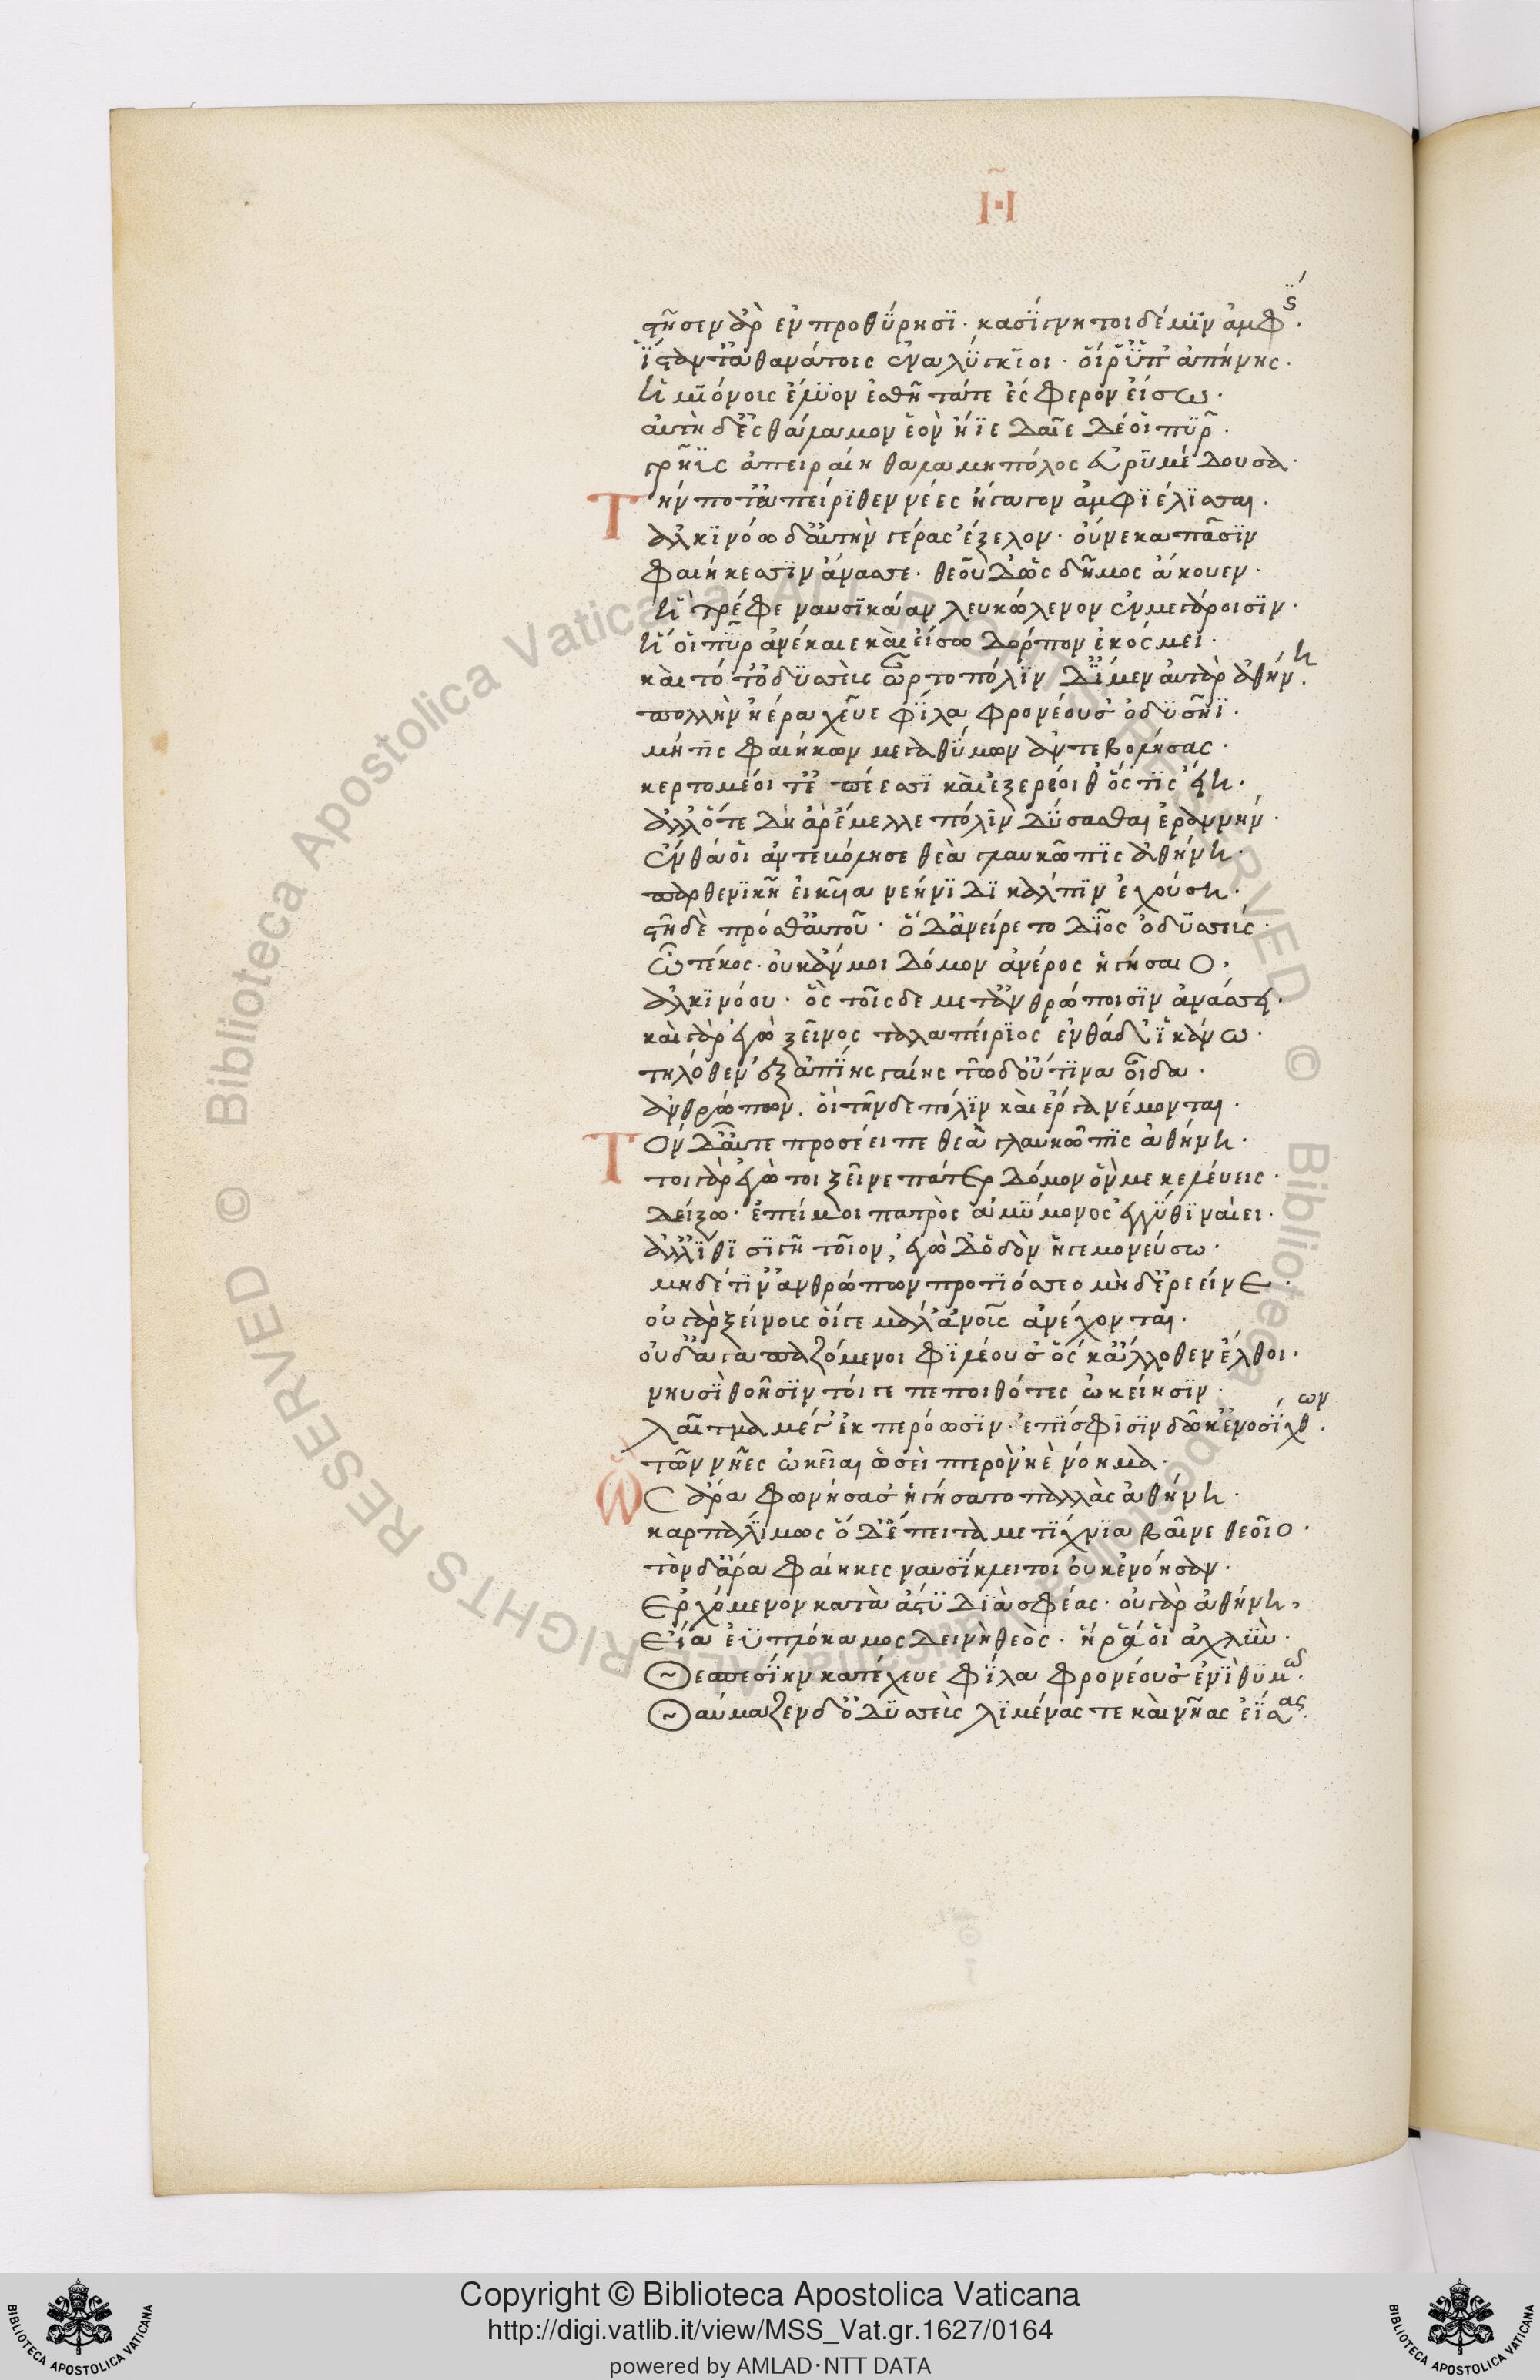 Η
στῆσεν ἄρ ἐν προθύρησι· κασίγνητοι δέ μιν ἀμφίς·
ἵσταντ' ἀθανάτοις ἐναλίγκιοι· οἵ ῥ' ὑπ' ἀπήνης·
ἡμιόνοις ἔλυον ἐσθῆτά τε ἔσφερον εἴσω·
αὐτὴ δ' ἐς θάλαμον ἑὸν ἤϊε δαῖε δέ οἱ πῦρ·
γρηῒς ἀπειραίη θαλαμηπόλος εὐρυμέδουσα·
Τήν ποτ' ἀπείρηθεν νέες ἤγαγον ἀμφιέλισσαι·
ἀλκινόω δ' αὐτὴν γέρας ἔξελον· οὕνεκα πᾶσιν
φαιήκεσσιν ἄνασσε· θεοῦ δ' ὣς δῆμος ἄκουεν·
ἣ τρέφε ναυσικάαν λευκώλενον ἐν μεγάροισιν·
ἥ οἱ πῦρ ἀνέκαιε καὶ εἴσω δόρπον ἐκόσμει·
καὶ τότ' ὀδυσσεὺς ὦρτο πόλιν δ' ἴμεν αὐτὰρ ἀθήνη·
πολλὴν ἠέρα χεῦε φίλα φρονέουσ' ὀδυσῆϊ·
μή τις φαιήκων μεγαθύμων ἀντεβολήσας·
κερτομέοι τ' ἐπέεσσι καὶ ἐξερέοιθ' ὅς τις εἴη·
ἀλλ' ὅτε δὴ ἄρ' ἔμελλε πόλιν δύσασθαι ἐραννήν·
ἔνθά οἱ ἀντεβόλησε θεὰ γλαυκῶπις ἀθήνη·
παρθενικῇ εἰκυῖα νεήνιδι κάλπιν ἐχούση·
στῆ δὲ πρόσθ' αὐτοῦ· ὁ δ' ἀνείρετο δῖος ὀδυσσεύς·
ὦ τέκος· οὐκ ἄν μοι δόμον ἀνέρος ἡγήσαιο·
ἀλκινόου· ὃς τοῖσδε μετ' ἀνθρώποισιν ἀνάσσει·
καὶ γὰρ ἐγὼ ξεῖνος ταλαπείριος ἐνθάδ' ἱκάνω·
τηλόθεν ἐξ ἀπίης γαίης τῶ δ' οὔτινα οἶδα·
ἀνθρώπων, οἳ τήνδε πόλιν καὶ ἔργα νέμονται·
Τὸν δ' αὖτε προσέειπε θεὰ γλαυκῶπις ἀθήνη·
τοιγὰρ ἐγώ τοι ξεῖνε πάτερ δόμον ὅν με κελεύεις·
δείξω· ἐπεί μοι πατρὸς ἀμύμονος ἐγγύθι ναίει·
ἀλλ' ἴθι σιγῇ τοῖον, ἐγὼ δ' ὁδὸν ἡγεμονεύσω·
μηδέ τιν' ἀνθρώπων προτιόσσεο μὴ δ' ἐρεείνε·
οὐ γὰρ ξείνους οἵγε μάλ' ἀνοῖς ἀνέχονται·
οὐδ' ἀγαπαζόμενοι φιλέουσ' ὅς κ' ἄλλοθεν ἔλθοι·
νηυσὶ θοῇσιν τοί γε πεποιθότες ὠκείησιν·
λαῖτμα μέγ' ἐκπερόωσιν· ἐπίσφισιν δῶκ' ἐνοσίχθων·
τῶν νῆες ὠκεῖαι ὡσεὶ πτερὸν ἠὲ νόημα·
Ὣς ἄρα φωνήσασ' ἡγήσατο παλλὰς ἀθήνη·
καρπαλίμως ὁ δ' ἔπειτα μετ' ἴχνια βαῖνε θεοῖο·
τὸν δ' ἄρα φαίηκες ναυσίκλειτοι οὐκ ἐνόησαν·
Ἐρχόμενον κατὰ ἄστυ διὰ σφέας· οὐ γὰρ ἀθήνη,
Εἴα ἐϋπλόκαμος δεινὴ θεὸς· ἥ ῥά οἱ ἀχλὺν·
Θεσπεσίην κατέχευε φίλα φρονέουσ' ἐνὶ θυμῶ·
Θαύμαζεν δ' ὀδυσσεὺς λιμένας τε καὶ νῆας ἐΐσας·
Copyright © Biblioteca Apostolica Vaticana
http://digi.vatlib.it/view/MSS_Vat.gr.1627/0164
powered by AMLAD·NTT DATA
BIBLIOTECA APOSTOLICA VATICANA
BIBLIOTECA APOSTOLICA VATICANA
© Biblioteca Apostolica Vaticana ALL RIGHTS RESERVED © Biblioteca Apostolica Vaticana ALL RIGHTS RESERVED